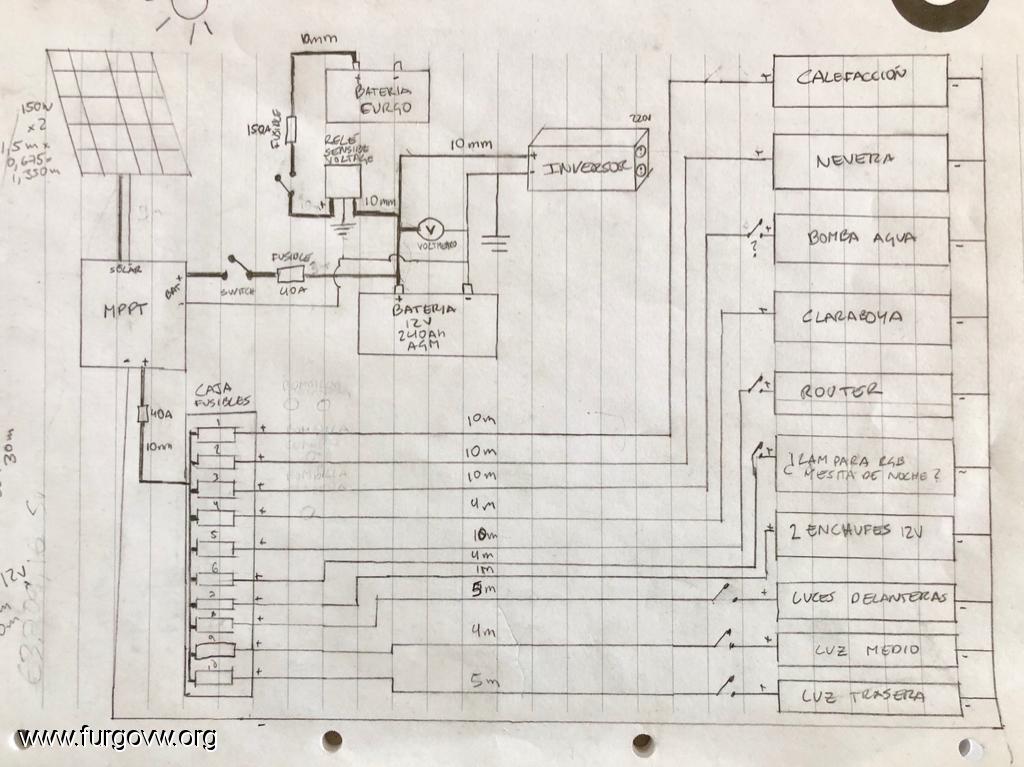 10mm
BATERIA
FURGO
150W
x2
1,5m x
0,675
1,350m
150A
FUSIBLE
RELE
SENSIBLE
VOLTAGE
10mm
10mm
220V
INVERSOR
V
VOLTMETRO
SOLAR
MPPT
BAT
SWITCH
FUSIBLE
40A
BATERIA
12V
240Ah
AGM
40A
10mm
CAJA
FUSIBLES
1
2
3
4
5
6
7
8
9
10
10m
10m
10m
4m
10m
4m
1m
5m
4m
5m
CALEFACCIÓN
NEVERA
BOMBA AGUA
?
CLARABOYA
ROUTER
¿LAMPARA RGB
MESITA DE NOCHE?
2 ENCHUFES 12V
LUCES DELANTERAS
LUZ MEDIO
LUZ TRASERA
30m
12V
www.furgovw.org